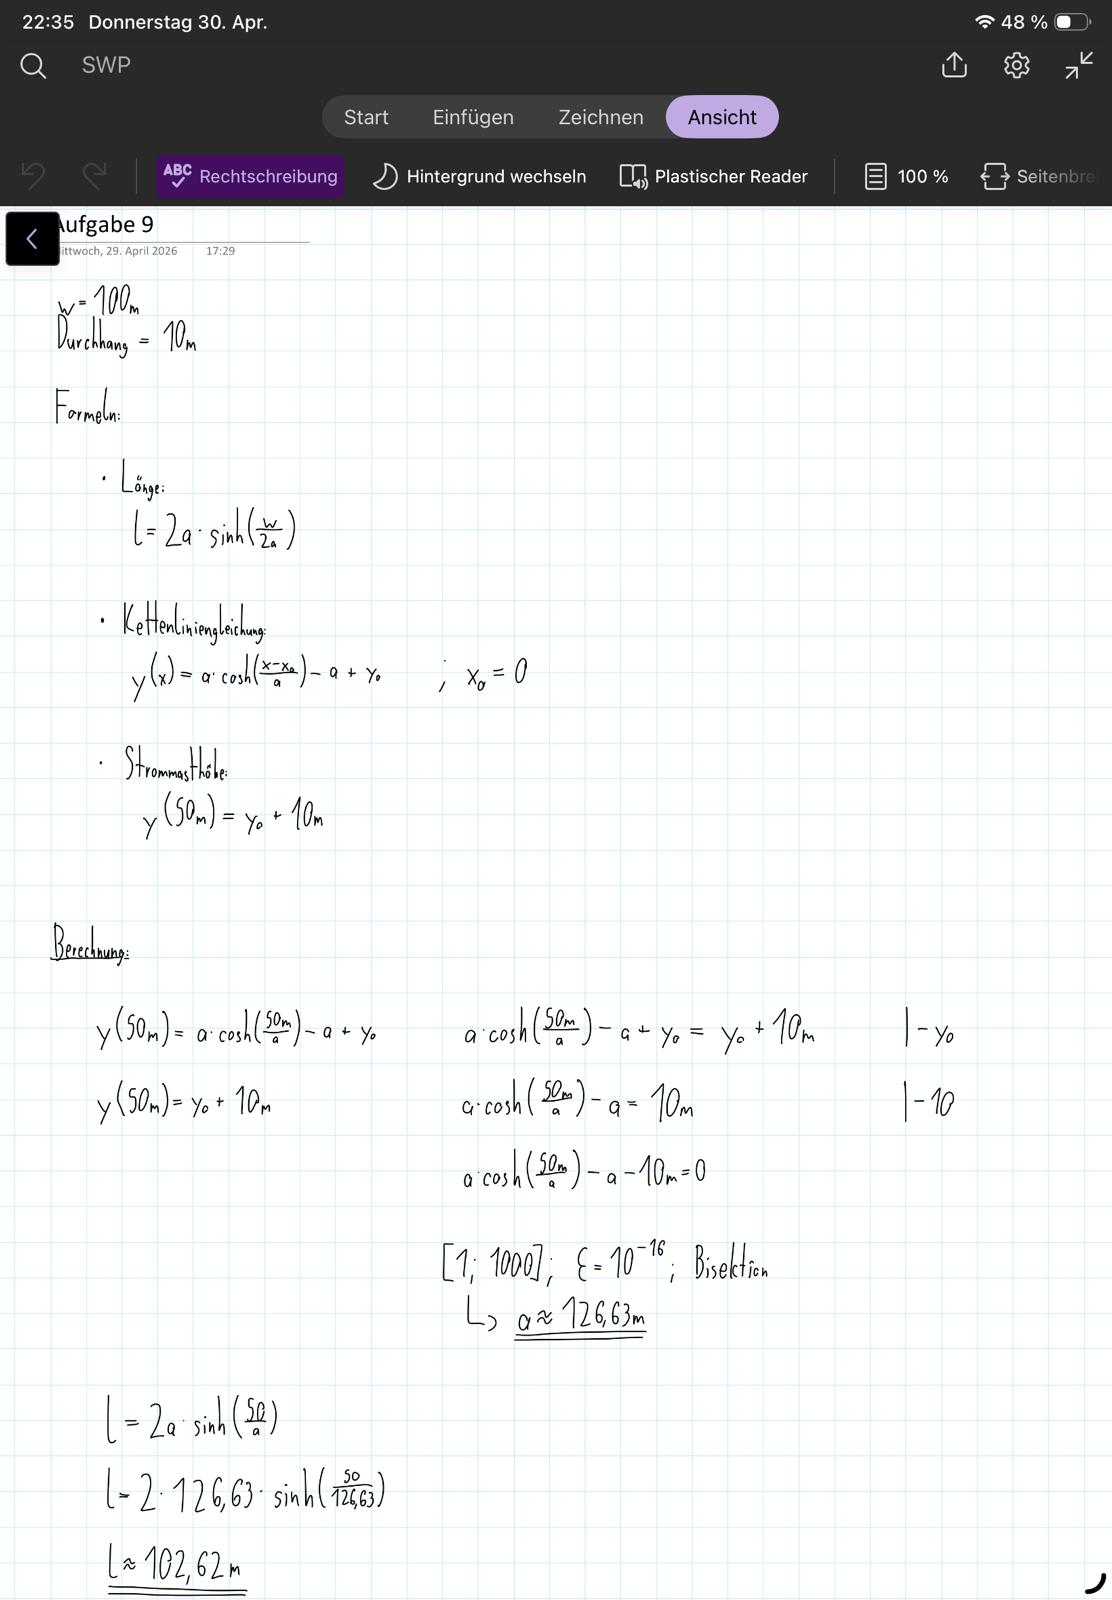 22:35 Donnerstag 30. Apr. 48 %
SWP
Start Einfügen Zeichnen Ansicht
ABC Rechtschreibung Hintergrund wechseln Plastischer Reader 100 % Seitenbre
Aufgabe 9
ittwoch, 29. April 2026 17:29
w = 100m
Durchhang = 10m
Formeln:
· Länge:
l = 2a · sinh(w/2a)
· Kettenliniengleichung:
y(x) = a · cosh((x-x₀)/a) - a + y₀ ; x₀ = 0
· Strommasthöhe:
y(50m) = y₀ + 10m
Berechnung:
y(50m) = a · cosh(50m/a) - a + y₀ a · cosh(50m/a) - a + y₀ = y₀ + 10m |- y₀
y(50m) = y₀ + 10m a · cosh(50m/a) - a = 10m |- 10
a · cosh(50m/a) - a - 10m = 0
[1; 1000]; ε = 10⁻¹⁶; Bisektion
↳ a ≈ 126,63m
l = 2a · sinh(50/a)
l = 2 · 126,63 · sinh(50/126,63)
l ≈ 102,62m